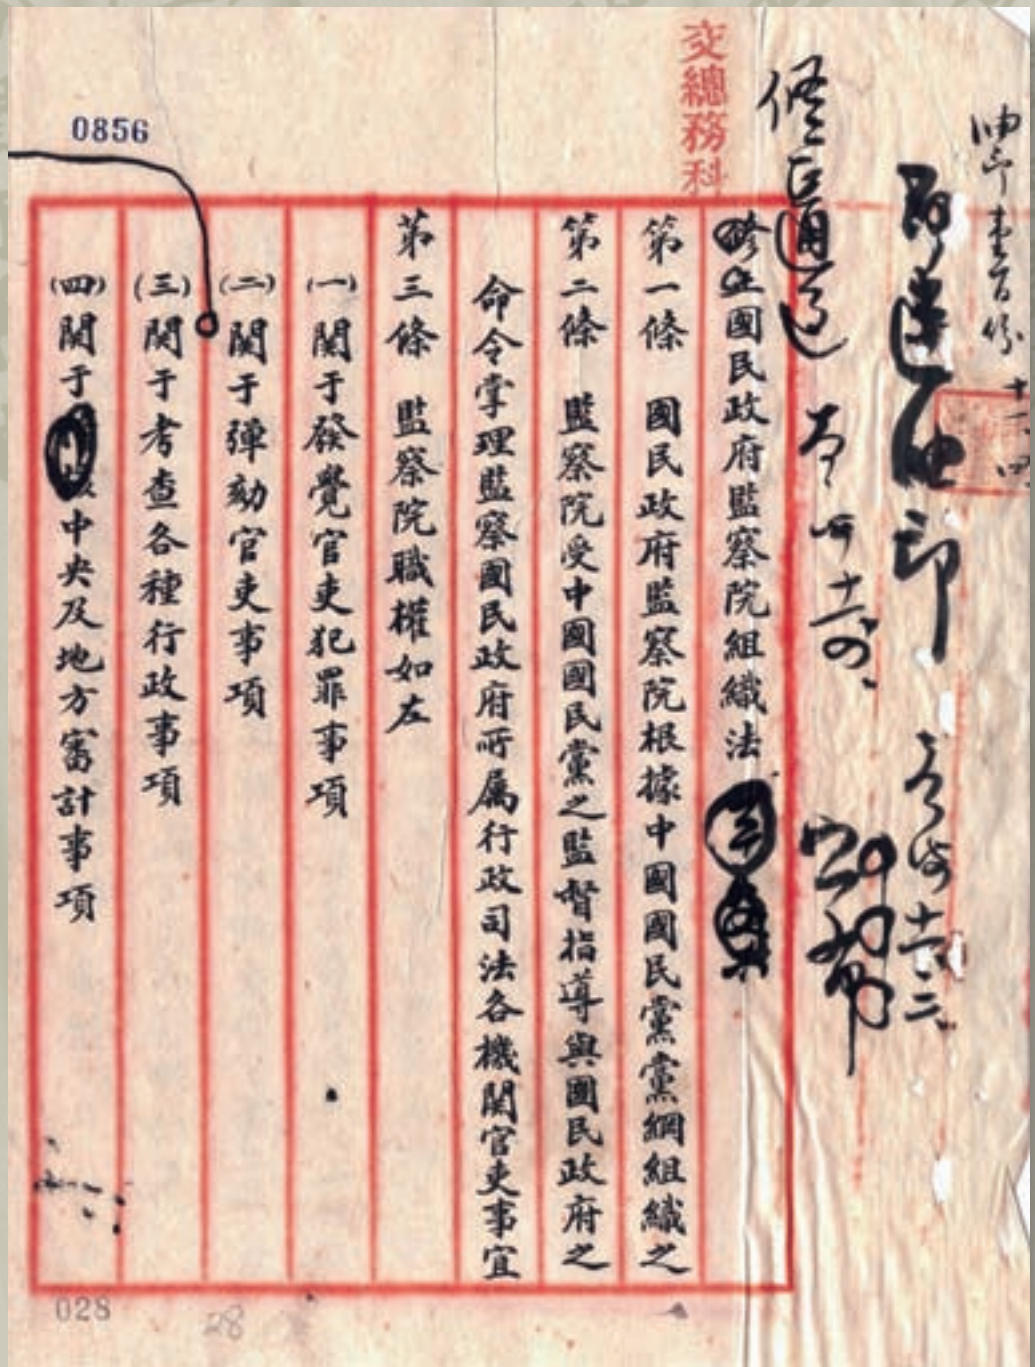 油印壹百份
十二、四
即送油印
交總務科
修正國民政府監察院組織法
第一條　國民政府監察院根據中國國民黨黨綱組織之
第二條　監察院受中國國民黨之監督指導與國民政府之
命令掌理監察國民政府所属行政司法各機関官吏事宜
第三條　監察院職權如左
(一)関于發覺官吏犯罪事項
(二)関于彈劾官吏事項
(三)関于考查各種行政事項
(四)関于中央及地方審計事項
0856
028
28